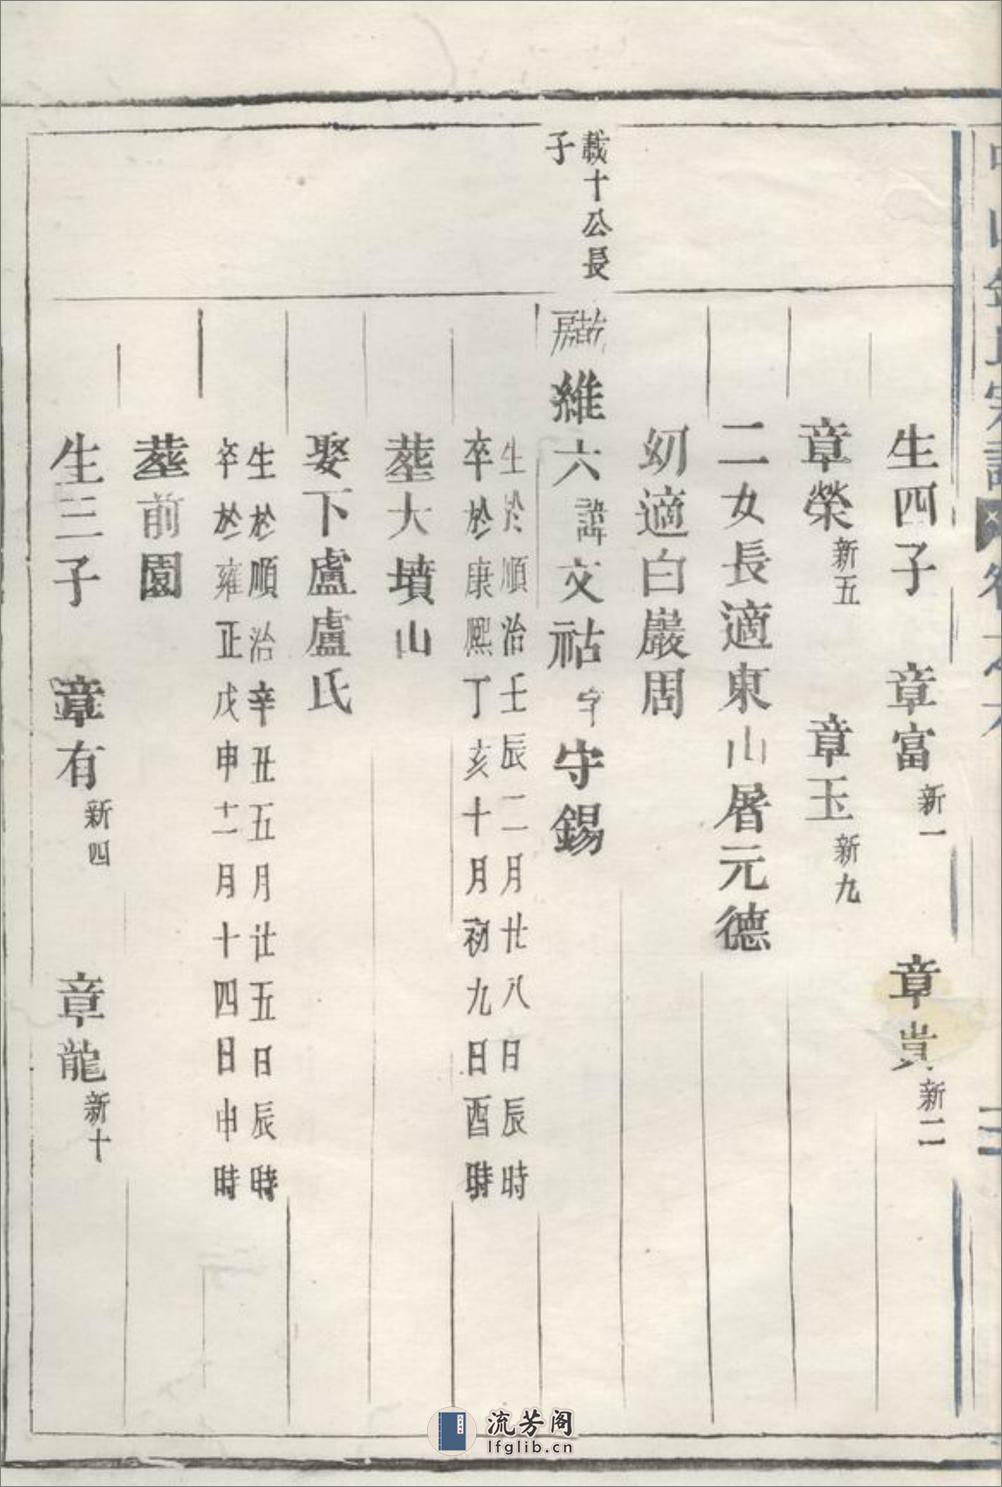 生四子 章富新一 章貴新二
章榮新五 章玉新九
二女長適東山屠元德
幼適白巖周
載十公長
子
房 維六諱文祜字守錫
生於順治壬辰二月廿八日辰時
卒於康熙丁亥十月初九日酉時
葬大墳山
娶下盧盧氏
生於順治辛丑五月廿五日辰時
卒於雍正戊申十二月十四日申時
葬前園
生三子 章有新四 章龍新十
流芳阁
lfglib.cn